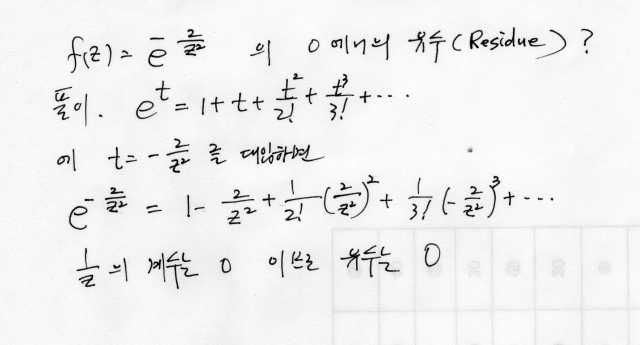 f(z) = e^{-2/z²} 의 0에서의 유수(Residue)?
풀이. e^t = 1 + t + t²/2! + t³/3! + ···
에 t = -2/z² 를 대입하면
e^{-2/z²} = 1 - 2/z² + 1/2! (2/z²)² + 1/3! (-2/z²)³ + ···
1/z 의 계수는 0 이므로 유수는 0